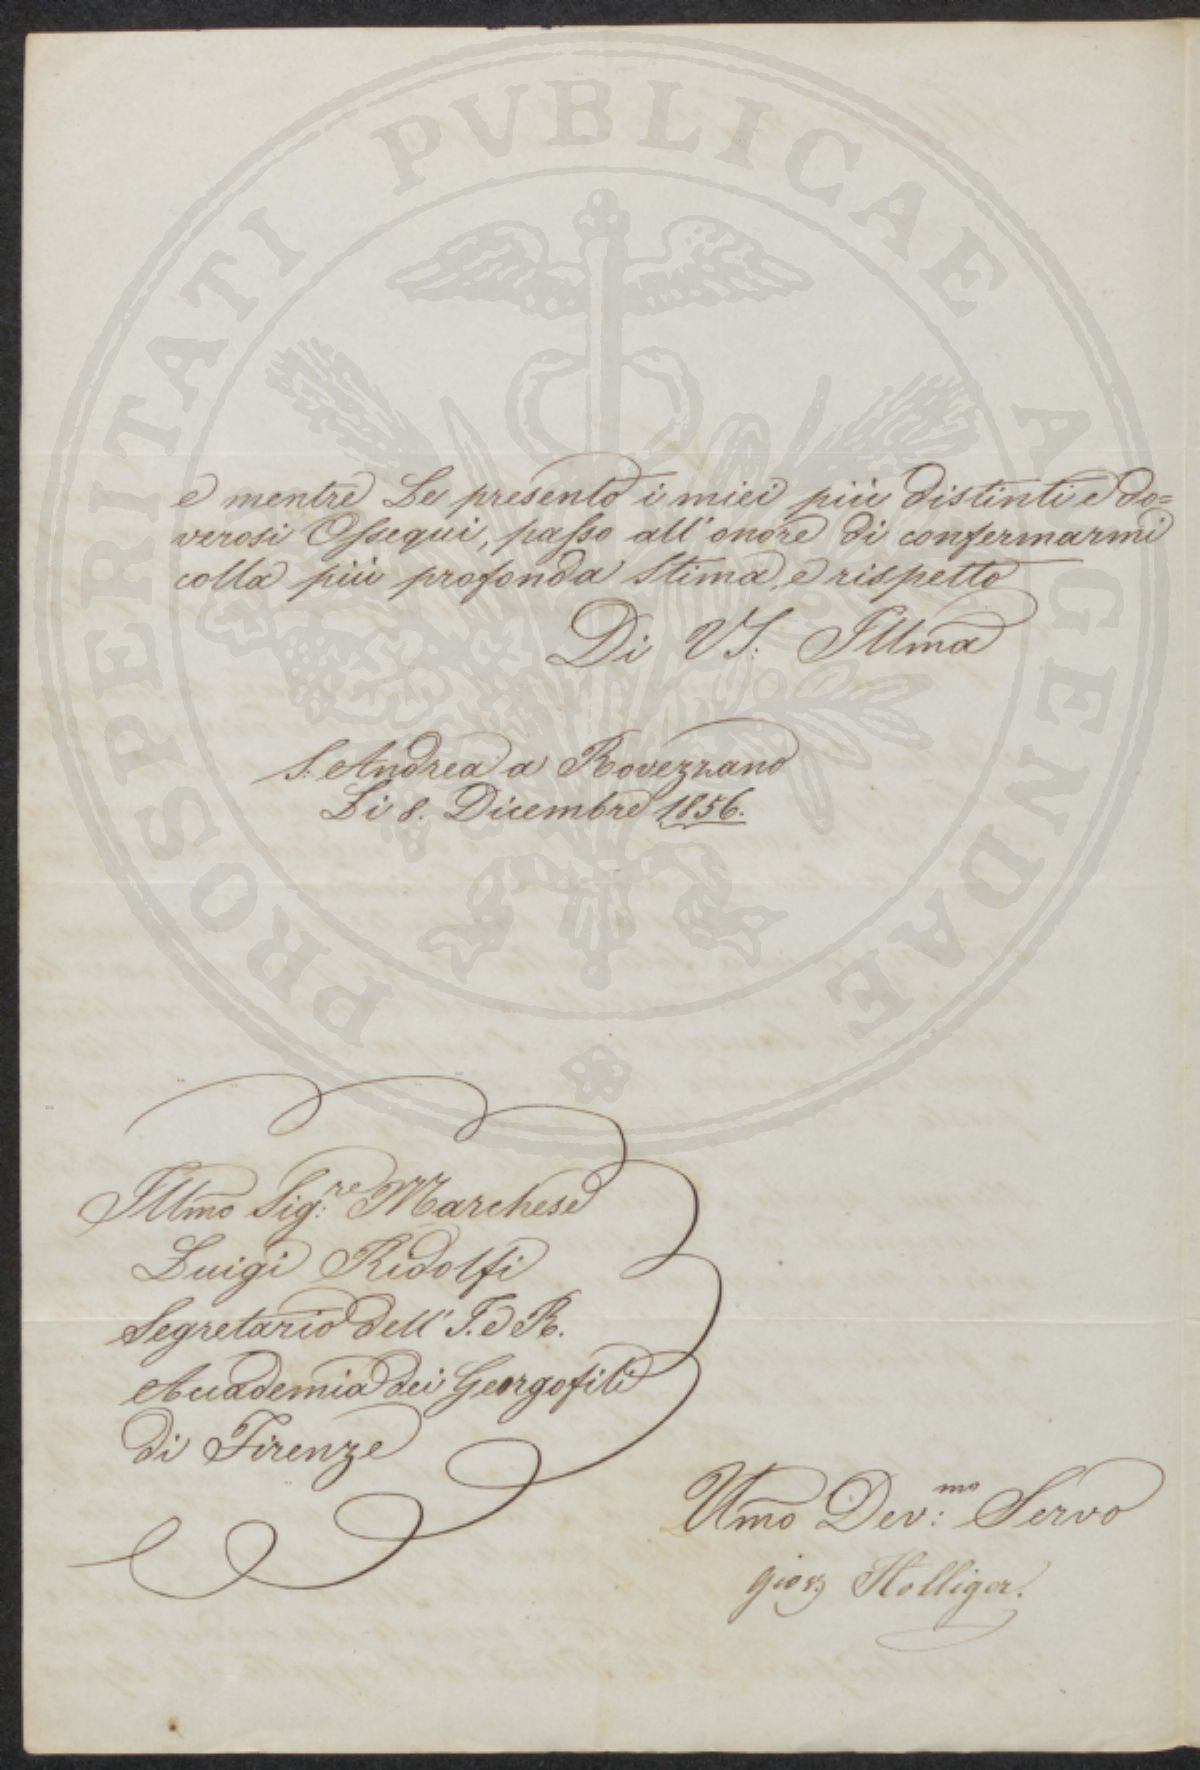 PROSPERITATI PVBLICAE AVGENDAE
e mentre Le presento i miei più distinti e do=
verosi Ossequi, passo all'onore di confermarmi
colla più profonda Stima, e rispetto
Di VS: Illma
S: Andrea a Rovezzano
Li 8. Dicembre 1856.
Illmo Sig:re Marchese
Luigi Ridolfi
Segretario dell' I. e R.
Accademia dei Georgofili
di Firenze
Umo Dev:mo Servo
Holliger.